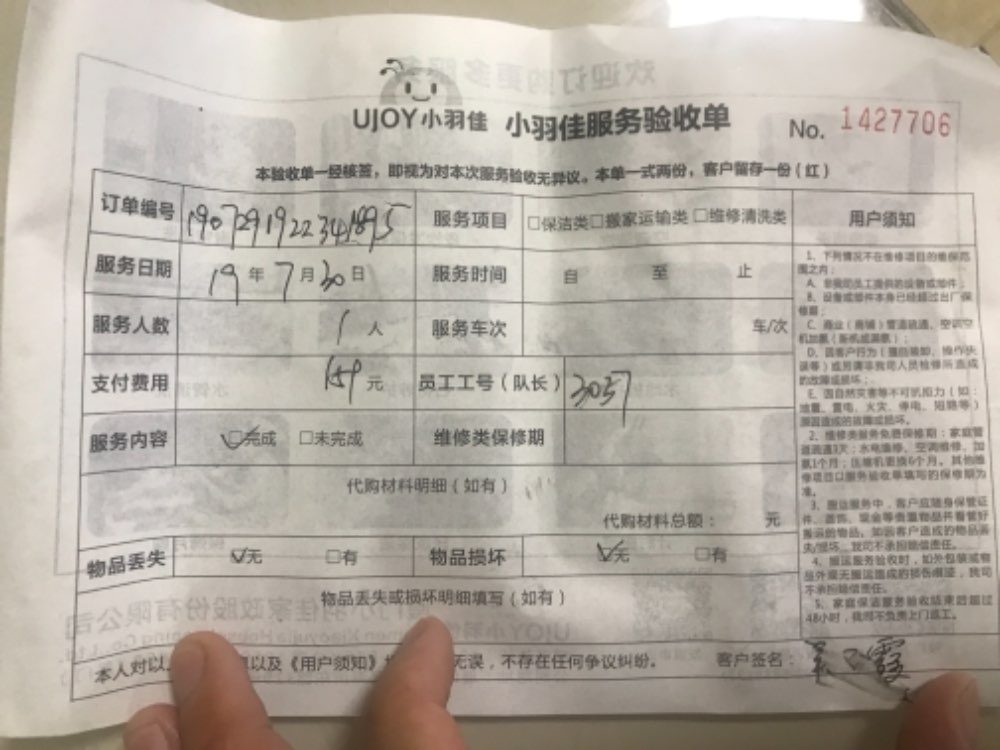 UJOY小羽佳 小羽佳服务验收单 No. 1427706
本验收单一经核签，即视为对本次服务验收无异议。本单一式两份，客户留存一份（红）
订单编号 服务项目 □保洁类□搬家运输类□维修清洗类 用户须知
服务日期 19年7月30日 服务时间 自 至 止
服务人数 1人 服务车次 车/次
支付费用 159元 员工工号（队长） 3057
服务内容 ☑完成 □未完成 维修类保修期
代购材料明细（如有）
代购材料总额： 元
物品丢失 ☑无 □有 物品损坏 ☑无 □有
物品丢失或损坏明细填写（如有）
本人对以 以及《用户须知》 无误，不存在任何争议纠纷。 客户签名：
1、下列情况不在维修项目的维保范
围之内：
A、非我司员工提供的设备或部件；
B、设备或部件本身已经超过出厂保
修期；
C、商业（商铺）管道疏通、空调空
D、因客户行为
的故障或损坏；
E、因自然灾害等不可抗拒力（如：
地震、雷电、火灾、停电、短路等）
原因造成的故障或损坏。
2、维修类服务免费保修期：家庭管
道疏通3天；水电维修、空调维修、加
氨1个月；压缩机更换6个月。其他维
修项目以服务验收单填写的保修期为
准。
3、搬运服务中，客户应随身保管证
件、首饰、现金等贵重物品并看管好
搬运的物品。如因客户造成的物品丢
失/损坏，我司不承担赔偿责任。
4、搬运服务验收时，如外包装或物
品外观无搬运造成的损伤痕迹，我司
不承担赔偿责任。
5、家庭保洁服务验收结束后超过
48小时，我司不负责上门返工。